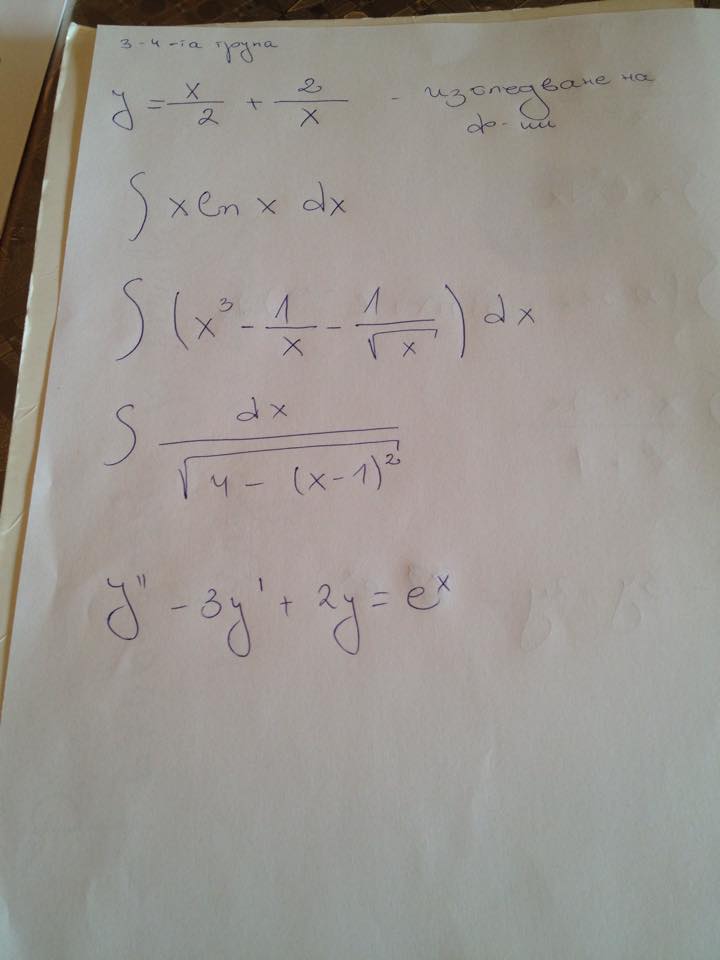 3-4-та група
y = x/2 + 2/x - изследване на
ф-ии
∫ x ln x dx
∫ (x³ - 1/x - 1/√x) dx
∫ dx/√(4 - (x-1)²)
y'' - 3y' + 2y = eˣ